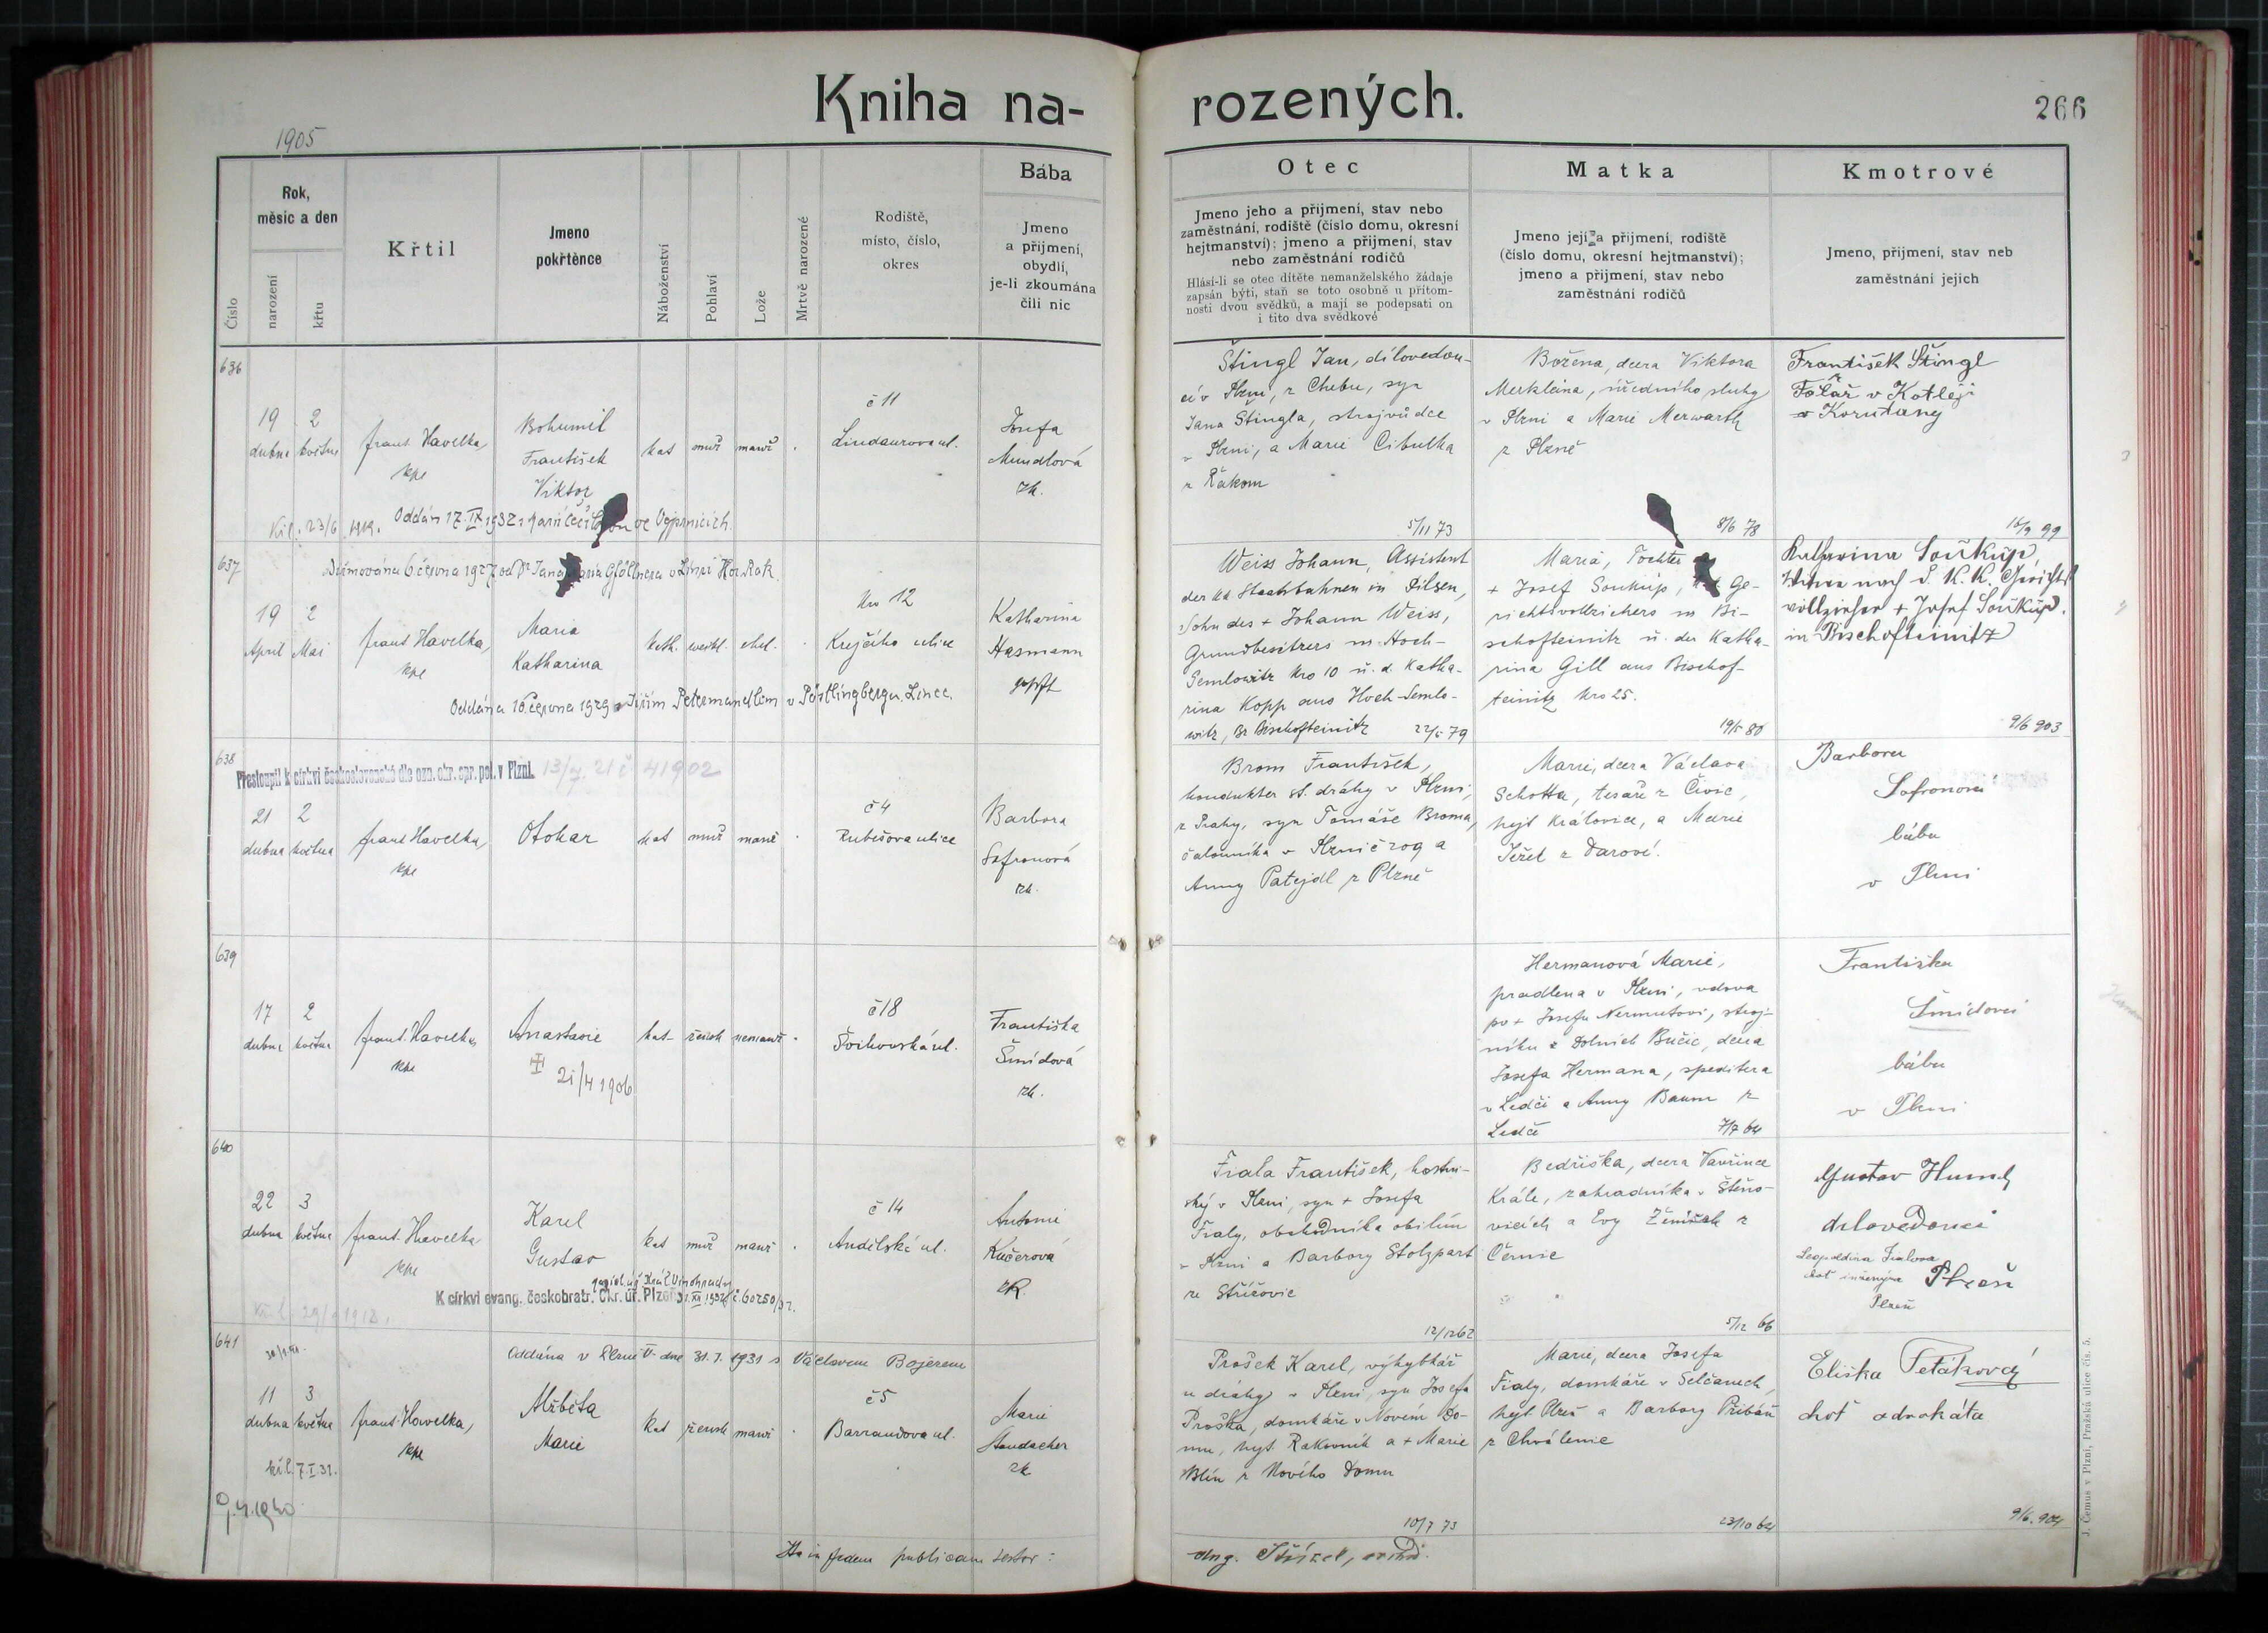 Kniha na-
rozených.
266
1905
Číslo
Rok,
měsíc a den
narození
křtu
Křtil
Jmeno
pokřtěnce
Náboženství
Pohlaví
Lože
Mrtvě narozené
Rodiště,
místo, číslo,
okres
Bába
Jmeno
a přijmení,
obydlí,
je-li zkoumána
čili nic
Otec
Jmeno jeho a přijmení, stav nebo
zaměstnání, rodiště (číslo domu, okresní
hejtmanství); jmeno a přijmení, stav
nebo zaměstnání rodičů
Hlásí-li se otec dítěte nemanželského žádaje
zapsán býti, staň se toto osobně u přítom-
nosti dvou svědků, a mají se podepsati on
i tito dva svědkové
Matka
Jmeno její a přijmení, rodiště
(číslo domu, okresní hejtmanství);
jmeno a přijmení, stav nebo
zaměstnání rodičů
Kmotrové
Jmeno, přijmení, stav neb
zaměstnání jejich
636
19
dubna
2
května
frant. Havelka,
kpe
Bohumil
František
Viktor
kat
muž
manž
č 11
Lindaurova ul.
Josefa
Mundlová
zk.
23/6 1919.
Oddán 17.IX.1932 s
ve Vejprnicích.
Štingl Jan, dílovedou-
cí v Plzni, z Chebu, syn
Jana Štingla, strojvůdce
v Plzni, a Marie Cibulka
z Řakom
5/11 73
Božena, dcera Viktora
Merkleina, úředního sluhy
v Plzni a Marie Merwarth
z Plzně
8/6 78
František Štingl
v Kotleji
v Korutany
637
Biřmována 6 června 1927 od Dr Jana Maria Gföllnera v Linci Hor. Rak.
19
April
2
Mai
frant Havelka,
kpe
Maria
Katharina
kath.
weibl.
ehel.
Nro 12
Krejčího ulice
Katharina
Hasmann
gepft
Oddána 16. června 1929 s Jiřím Petermandlem v Pöstlingbergu, Linec.
Weiss Johann, Assistent
der kk Staatsbahnen in Pilsen,
Sohn des + Johann Weiss,
Grundbesitzers in Hoch-
Semlowitz Nro 10 u. d. Katha-
rina Kopp aus Hoch-Semlo-
witz, Bz Bischofteinitz
22/5 79
Maria, Tochter
+ Josef Soukup, Ge-
richtsvollziehers in Bi-
schofteinitz u. der Katha-
rina Gill aus Bischof-
teinitz Nro 25.
19/5 80
Katharina Soukup,
Witwe nach d. K. K. Gerichts
vollzieher + Josef Soukup.
in Bischofteinitz
9/6 903
638
Přestoupil k církvi československé dle ozn. okr. spr. pol. v Plzni. 13/7. 21 č 41902
21
dubna
2
května
frant Havelka,
kpe
Otokar
kat
muž
manž
č 4
Rubešova ulice
Barbora
Sofronová
zk.
Brom František,
kondukter st. dráhy v Plzni,
z Prahy, syn Tomáše Broma,
čalouníka v Plzni č 209 a
Anny Patejdl z Plzně
Marie, dcera Václava
Schotta, tesaře z Čivic,
hejt Kralovice, a Marie
Ježel z Darové.
Barbora
Sofronová
bába
v Plzni
639
17
dubna
2
května
frant. Havelka,
kpe
Anastasie
21/4 1906
kat-
žensk
nemanž
č 18
Švihovská ul.
Františka
Šmídová
zk.
Hermanová Marie,
pradlena v Plzni, vdova
po + Josefu Nermutovi, stroj-
níku z Dolních Bučic, dcera
Josefa Hermana, speditera
v Ledči a Anny Baum z
Ledče
7/7 64
Františka
Šmídová
bába
v Plzni
640
22
dubna
3
května
frant. Havelka
kpe
Karel
Gustav
kat
muž
manž
č 14
Andělská ul.
Antonie
Kučerová
zk.
K církvi evang. českobratr. Okr. úř. Plzeň 31.XII.1932 č. 60250/32.
Fiala František, hostin-
ský v Plzni, syn + Josefa
Fialy, obchodníka obilím
v Plzni a Barbory Stolzpart
ze Střížovic
12/12 62
Bedřiška, dcera Vavřince
Krále, zahradníka v Štěno-
vicích a Evy Ženíšek z
Černic
5/12 66
Gustav Hund
dílovedoucí
Leopoldina Fialova
choť inženýra
Plzeň
Plzeň
641
Oddána v Plzni V. dne 31.7. 1931 s Václavem Bojerem
11
dubna
3
května
frant. Havelka,
kpe
Alžběta
Marie
kat
žensk
manž
č 5
Barrandova ul.
Marie
Standacher
zk
kř.l. 7.I.31.
9.4.1940
Prošek Karel, výhybkář
u dráhy v Plzni, syn Josefa
Proška, domkáře v Novém Do-
mu, hejt. Rakovník a + Marie
Blín z Nového Domu
10/7 73
Marie, dcera Josefa
Fialy, domkáře v Selčanech,
hejt Plzeň a Barbory Přibáň
z Chválenic
23/10 64
Eliška Peťákova
choť advokáta
9/6. 904
Ita in fidem publicam testor:
J. Čemus v Plzni, Pražská ulice čís. 5.